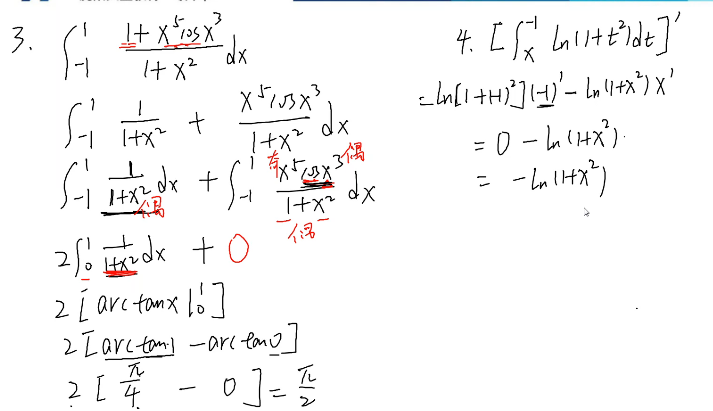 3. ∫_{-1}^{1} \frac{1+x^5cosx^3}{1+x^2}dx
∫_{-1}^{1} \frac{1}{1+x^2} + \frac{x^5cosx^3}{1+x^2}dx
∫_{-1}^{1} \frac{1}{1+x^2}dx + ∫_{-1}^{1} \frac{x^5cosx^3}{1+x^2}dx
偶 奇 偶 偶
2∫_{0}^{1} \frac{1}{1+x^2}dx + 0
2[arctanx|_0^1]
2[arctan1 - arctan0]
2[\frac{π}{4} - 0] = \frac{π}{2}
4. [∫_{x}^{-1} ln(1+t^2)dt]'
= ln[1+(-1)^2](-1)' - ln(1+x^2)x'
= 0 - ln(1+x^2).
= -ln(1+x^2)